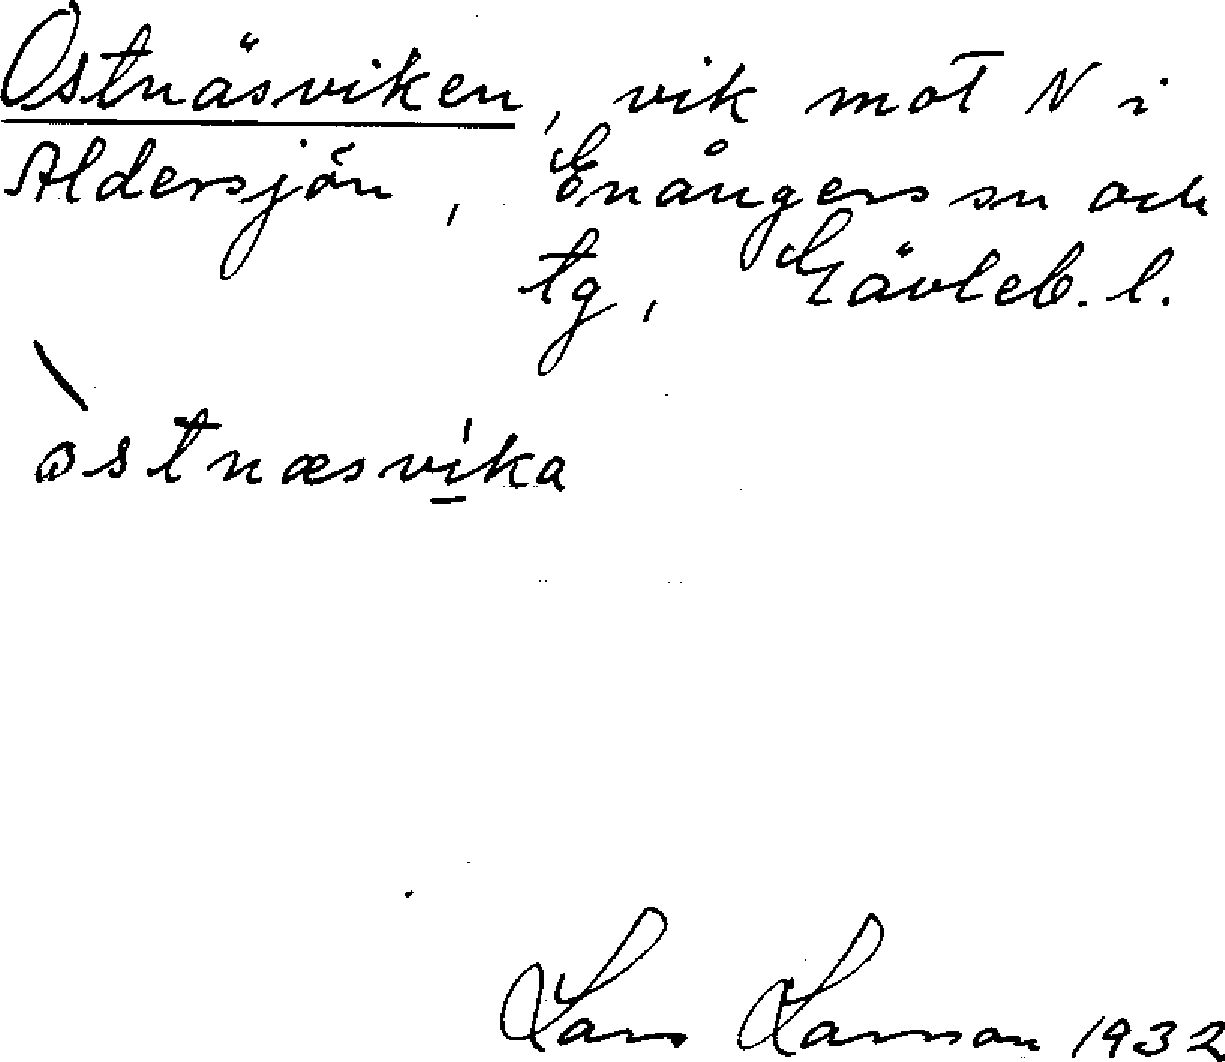 Östnäsviken, vik mot N i
Aldersjön, Enångers sn och
tg, Gävleb. l.
östnæsvika
Lars Larsson 1932